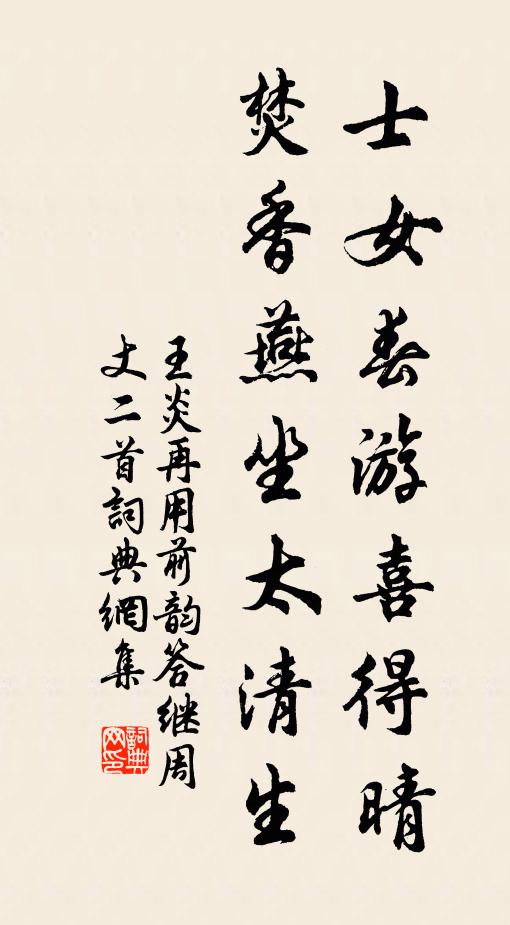 士女春游喜得晴
焚香燕坐太清生
王炎再用前韵答继周
丈二首詞典網集
詞典网印